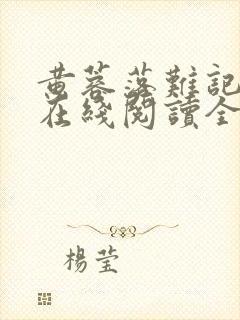 黄蓉落難記
在綫閱讀全
楊莹